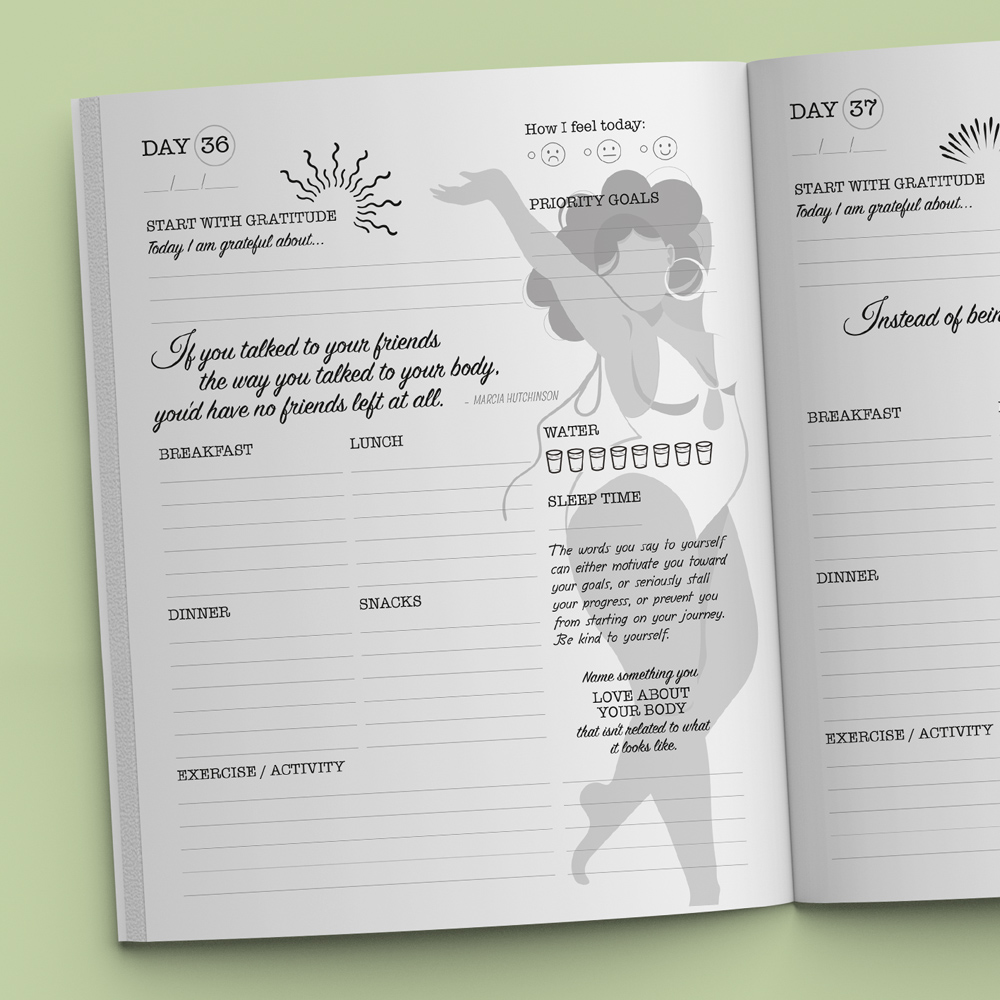 DAY 36
__/__/__
START WITH GRATITUDE
Today I am grateful about...
If you talked to your friends
the way you talked to your body,
you'd have no friends left at all.
- MARCIA HUTCHINSON
BREAKFAST
LUNCH
DINNER
SNACKS
EXERCISE / ACTIVITY
How I feel today:
PRIORITY GOALS
WATER
SLEEP TIME
The words you say to yourself
can either motivate you toward
your goals, or seriously stall
your progress, or prevent you
from starting on your journey.
Be kind to yourself.
Name something you
LOVE ABOUT
YOUR BODY
that isn't related to what
it looks like.
DAY 37
__/__/__
START WITH GRATITUDE
Today I am grateful about...
Instead of bein
BREAKFAST
DINNER
EXERCISE / ACTIVITY